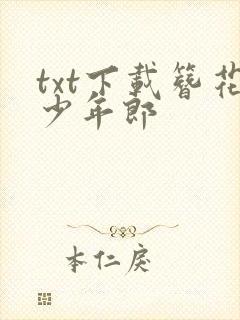 txt下載簪花
少年郎
本仁戾